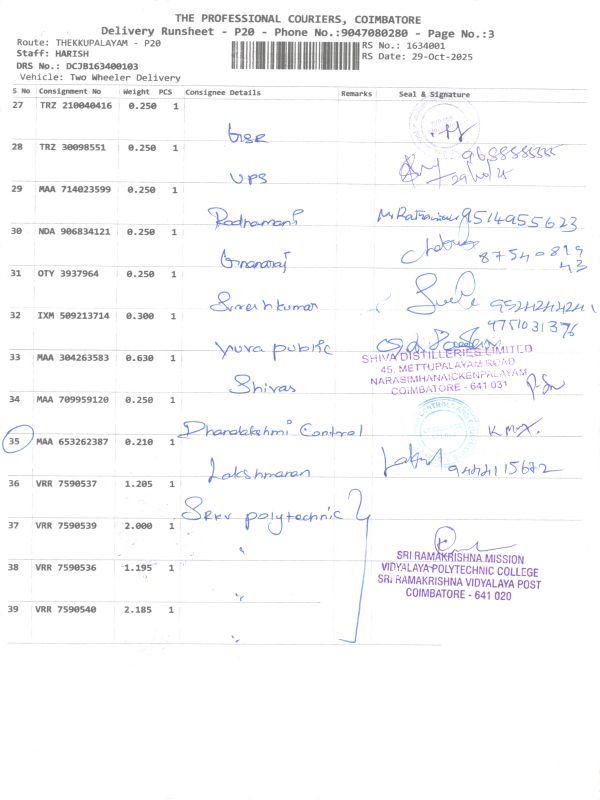 THE PROFESSIONAL COURIERS, COIMBATORE
Delivery Runsheet - P20 - Phone No.:9047080280 - Page No.:3
Route: THEKKUPALAYAM - P20
RS No.: 1634001
Staff: HARISH
RS Date: 29-Oct-2025
DRS No.: DCJB163400103
Vehicle: Two Wheeler Delivery
S No Consignment No Weight PCS Consignee Details Remarks Seal & Signature
27 TRZ 210040416 0.250 1
28 TRZ 30098551 0.250 1
UPS
29 MAA 714023599 0.250 1
Radhamani 9514955623
30 NDA 906834121 0.250 1
Gnanaraj 87540819
43
31 OTY 3937964 0.250 1
Sureshkumar
32 IXM 509213714 0.300 1
9751031376
Yuva public
33 MAA 304263583 0.630 1
SHIVA DISTILLERIES LIMITED
45, METTUPALAYAM ROAD
NARASIMHANAICKENPALAYAM
COIMBATORE - 641 031
Shivas
34 MAA 709959120 0.250 1
Dhanalakshmi Control
35 MAA 653262387 0.210 1
Lakshmanan 9444115672
36 VRR 7590537 1.205 1
SRKV polytechnic
37 VRR 7590539 2.000 1
"
SRI RAMAKRISHNA MISSION
VIDYALAYA POLYTECHNIC COLLEGE
38 VRR 7590536 1.195 1
SRI RAMAKRISHNA VIDYALAYA POST
COIMBATORE - 641 020
"
39 VRR 7590540 2.185 1
"